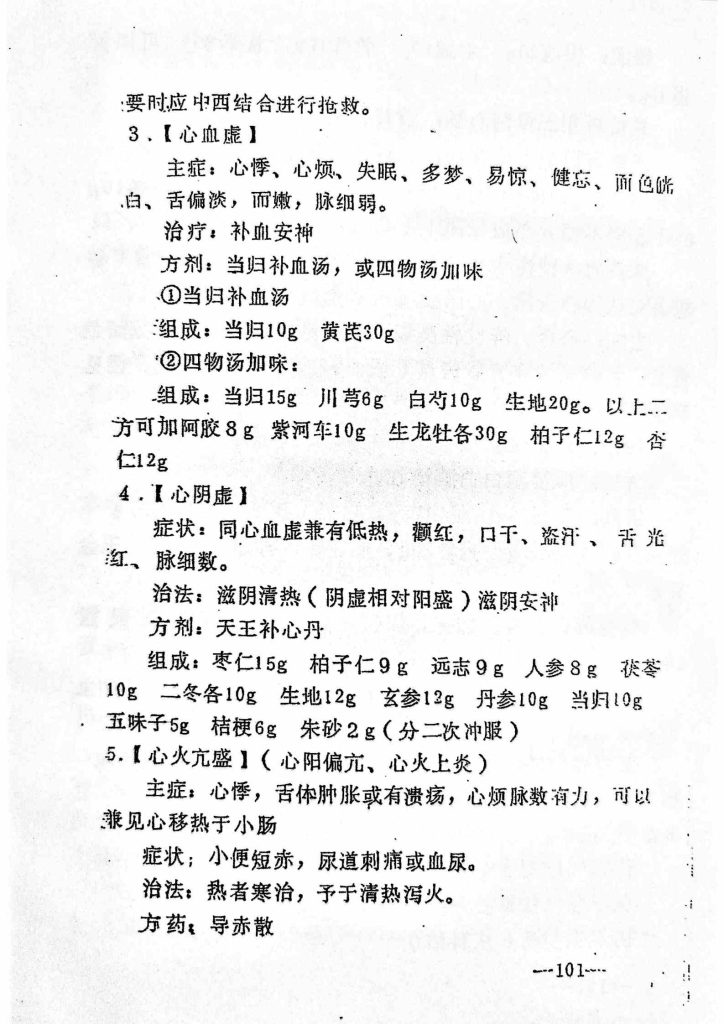 要时应中西结合进行抢救。
3.【心血虚】
主症：心悸、心烦、失眠、多梦、易惊、健忘、面色㿠
白、舌偏淡，而嫩，脉细弱。
治疗：补血安神
方剂：当归补血汤，或四物汤加味
①当归补血汤
组成：当归10g 黄芪30g
②四物汤加味：
组成：当归15g 川芎6g 白芍10g 生地20g。以上二
方可加阿胶8g 紫河车10g 生龙牡各30g 柏子仁12g 杏
仁12g
4.【心阴虚】
症状：同心血虚兼有低热，颧红，口干、盗汗、舌光
红、脉细数。
治法：滋阴清热（阴虚相对阳盛）滋阴安神
方剂：天王补心丹
组成：枣仁15g 柏子仁9g 远志9g 人参8g 茯苓
10g 二冬各10g 生地12g 玄参12g 丹参10g 当归10g
五味子5g 桔梗6g 朱砂2g（分二次冲服）
5.【心火亢盛】（心阳偏亢、心火上炎）
主症：心悸，舌体肿胀或有溃疡，心烦脉数有力，可以
兼见心移热于小肠
症状；小便短赤，尿道刺痛或血尿。
治法：热者寒治，予于清热泻火。
方药：导赤散
—101—